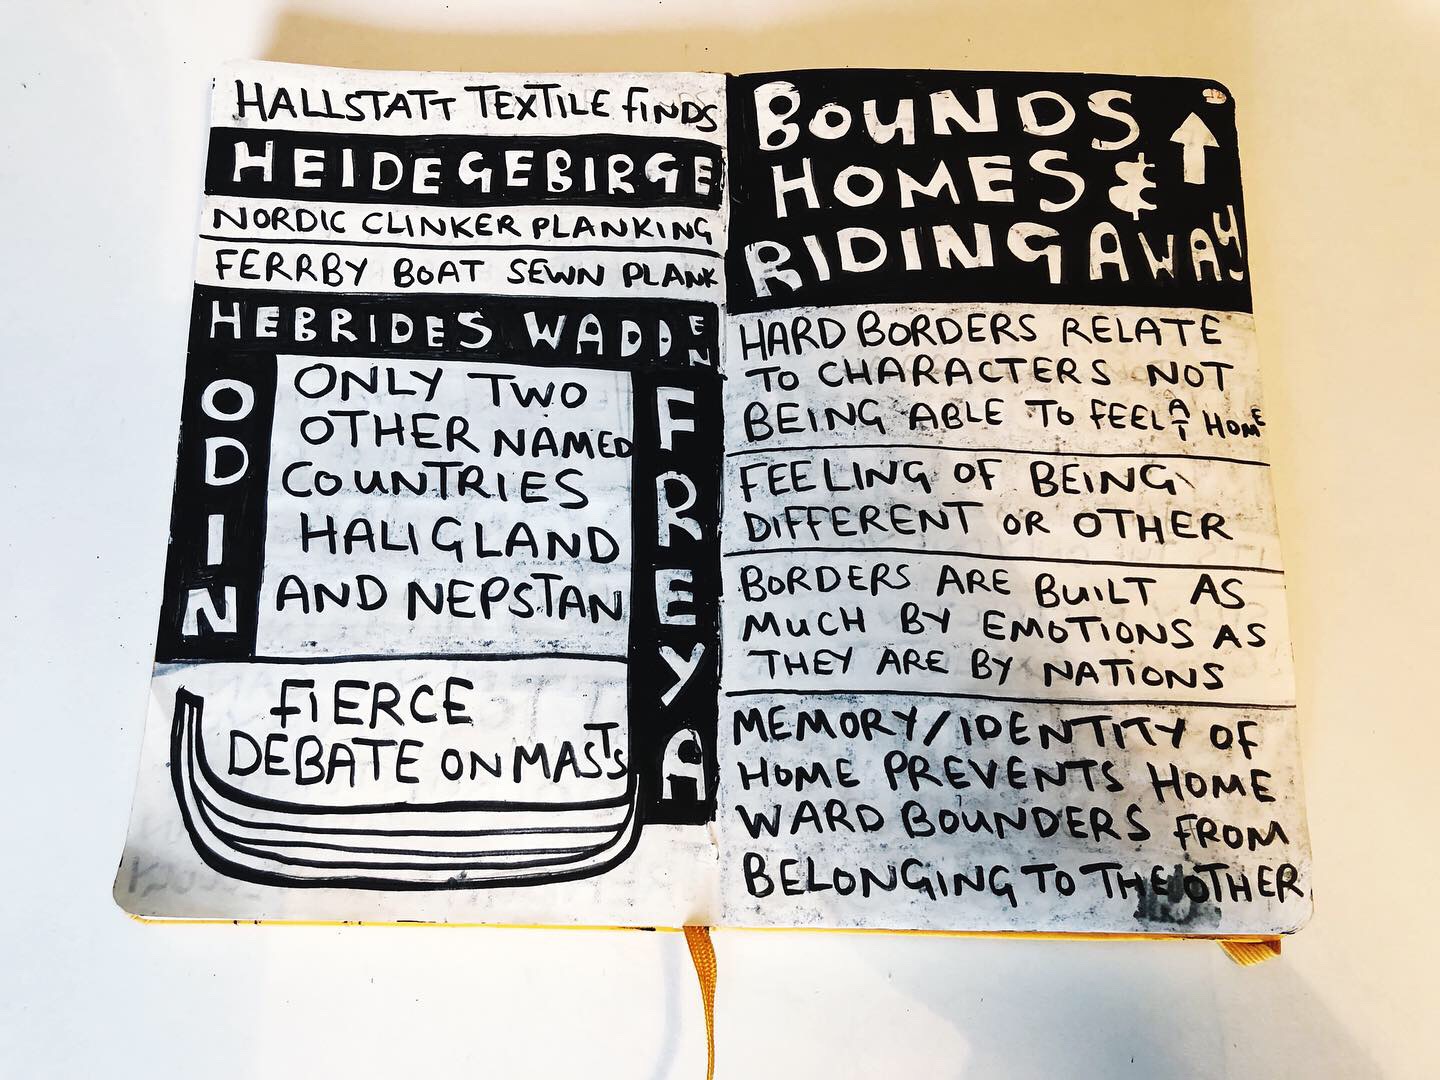 HALLSTATT TEXTILE FINDS
HEIDEGEBIRGE
NORDIC CLINKER PLANKING
FERRBY BOAT SEWN PLANK
HEBRIDES WADDEN
ODIN
ONLY TWO
OTHER NAMED
COUNTRIES
HALIGLAND
AND NEPSTAN
FREYA
FIERCE
DEBATE ON MASTS
BOUNDS
HOMES &
RIDING AWAY
HARD BORDERS RELATE
TO CHARACTERS NOT
BEING ABLE TO FEEL AT HOME
FEELING OF BEING
DIFFERENT OR OTHER
BORDERS ARE BUILT AS
MUCH BY EMOTIONS AS
THEY ARE BY NATIONS
MEMORY/IDENTITY OF
HOME PREVENTS HOME
WARD BOUNDERS FROM
BELONGING TO THE OTHER